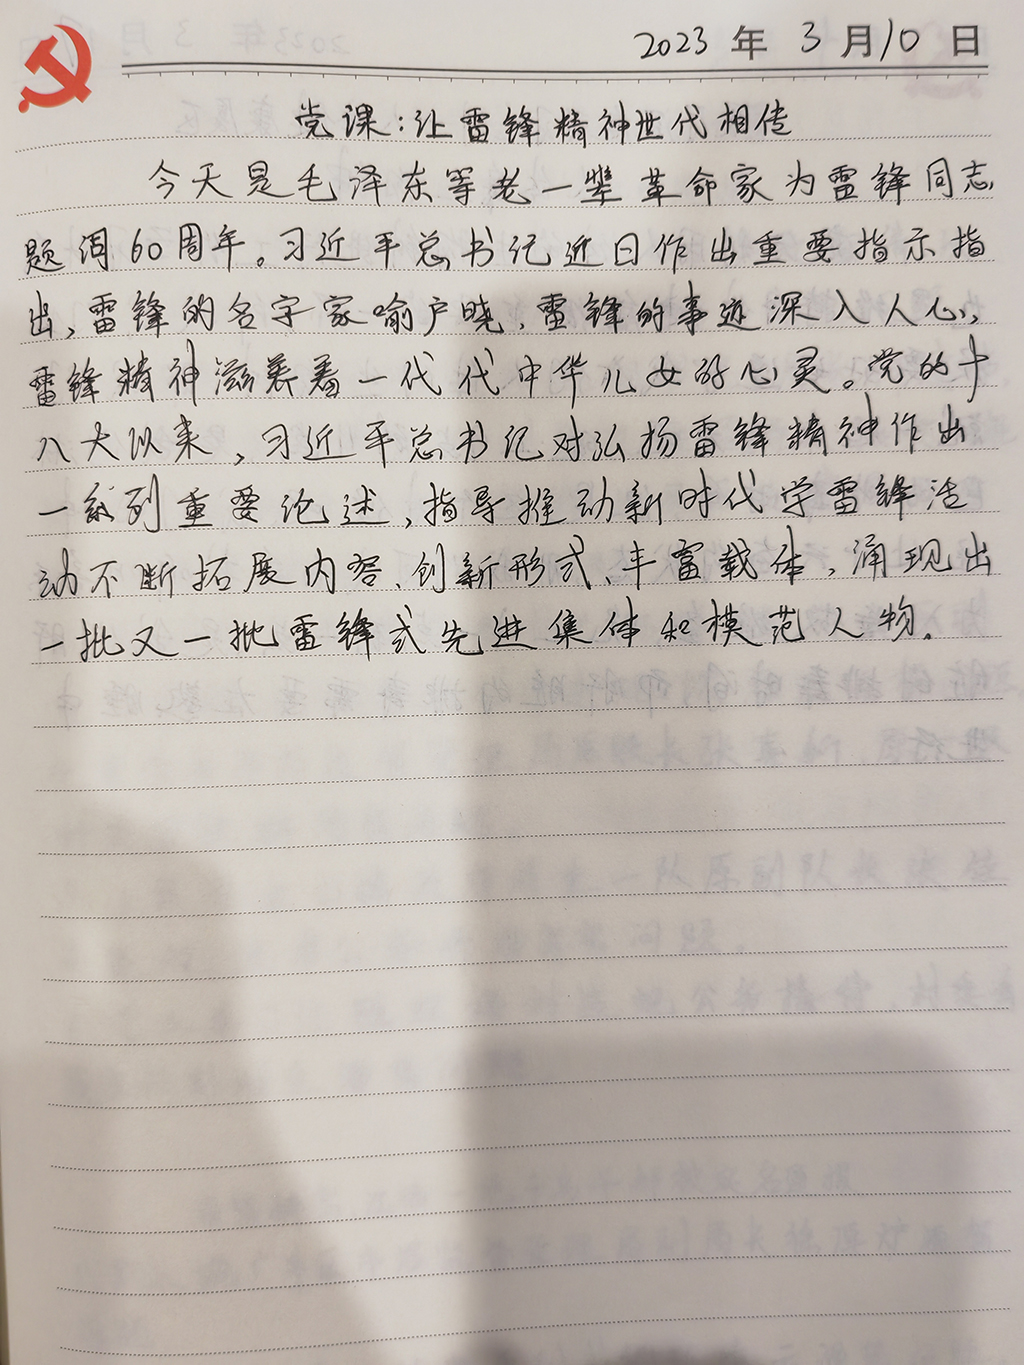 2023年3月10日
党课:让雷锋精神世代相传
今天是毛泽东等老一辈革命家为雷锋同志
题词60周年。习近平总书记近日作出重要指示指
出,雷锋的名字家喻户晓,雷锋的事迹深入人心,
雷锋精神滋养着一代代中华儿女的心灵。党的十
八大以来,习近平总书记对弘扬雷锋精神作出
一系列重要论述,指导推动新时代学雷锋活
动不断拓展内容、创新形式、丰富载体,涌现出
一批又一批雷锋式先进集体和模范人物。